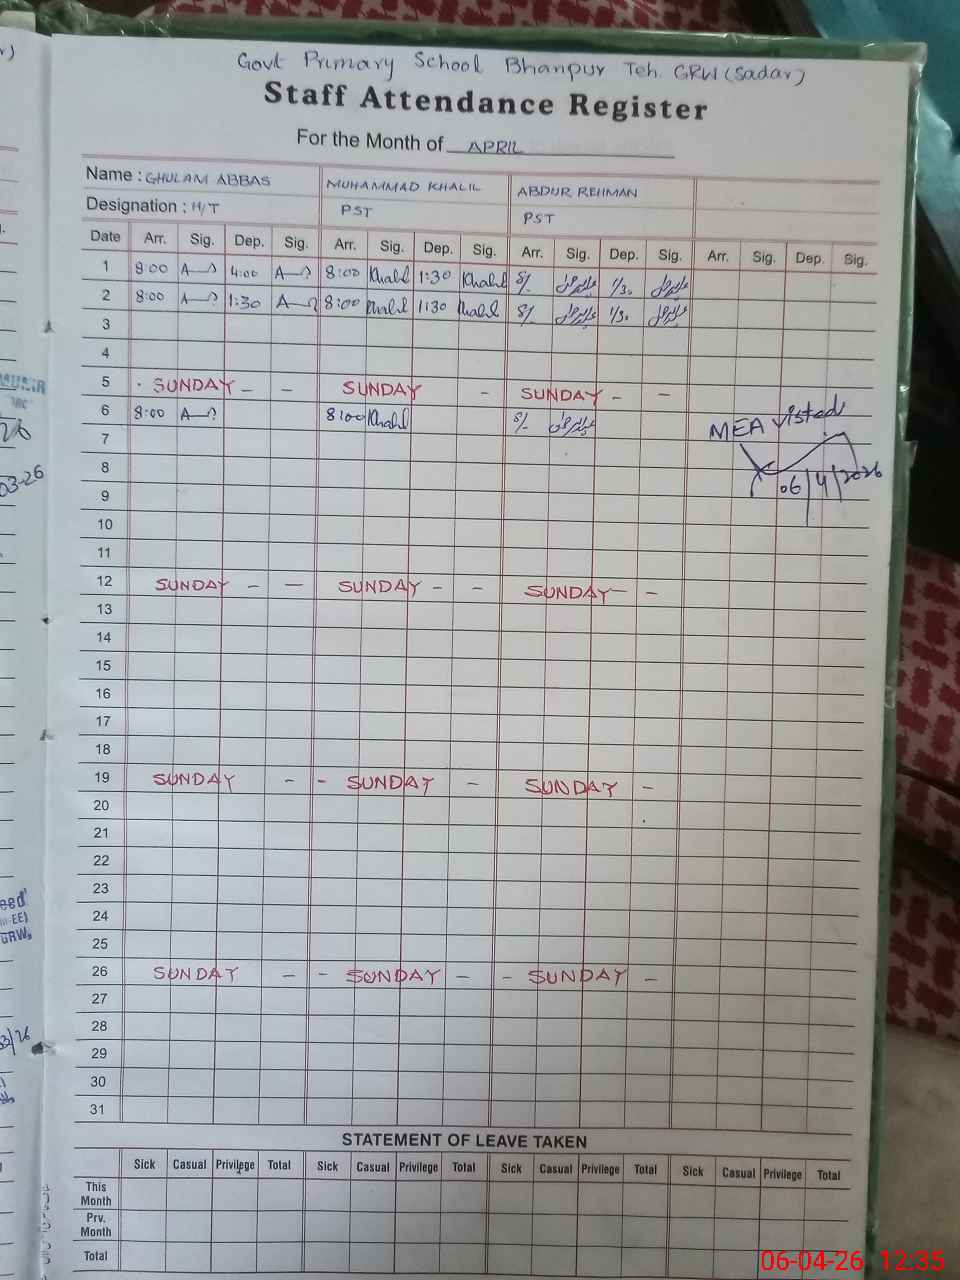 Govt Primary School Bhanpur Teh. GRW (Sadar)
Staff Attendance Register
For the Month of APRIL
Name : GHULAM ABBAS MUHAMMAD KHALIL ABDUR REHMAN
Designation : H/T PST PST
Date Arr. Sig. Dep. Sig. Arr. Sig. Dep. Sig. Arr. Sig. Dep. Sig. Arr. Sig. Dep. Sig.
1 8:00 4:00 8:00 Khalil 1:30 Khalil 8/- 1/30
2 8:00 1:30 8:00 Khalil 1:30 Khalil 8/- 1/30
3
4
5 SUNDAY - - SUNDAY - SUNDAY - -
6 8:00 8:00 Khalil 8/-
MEA visted
7
8
06/4/2026
9
10
11
12 SUNDAY - - SUNDAY - - SUNDAY - -
13
14
15
16
17
18
19 SUNDAY - - SUNDAY - SUNDAY -
20
21
22
23
24
25
26 SUNDAY - - SUNDAY - - SUNDAY -
27
28
29
30
31
STATEMENT OF LEAVE TAKEN
Sick Casual Privilege Total Sick Casual Privilege Total Sick Casual Privilege Total Sick Casual Privilege Total
This
Month
Prv.
Month
Total
06-04-26 12:35